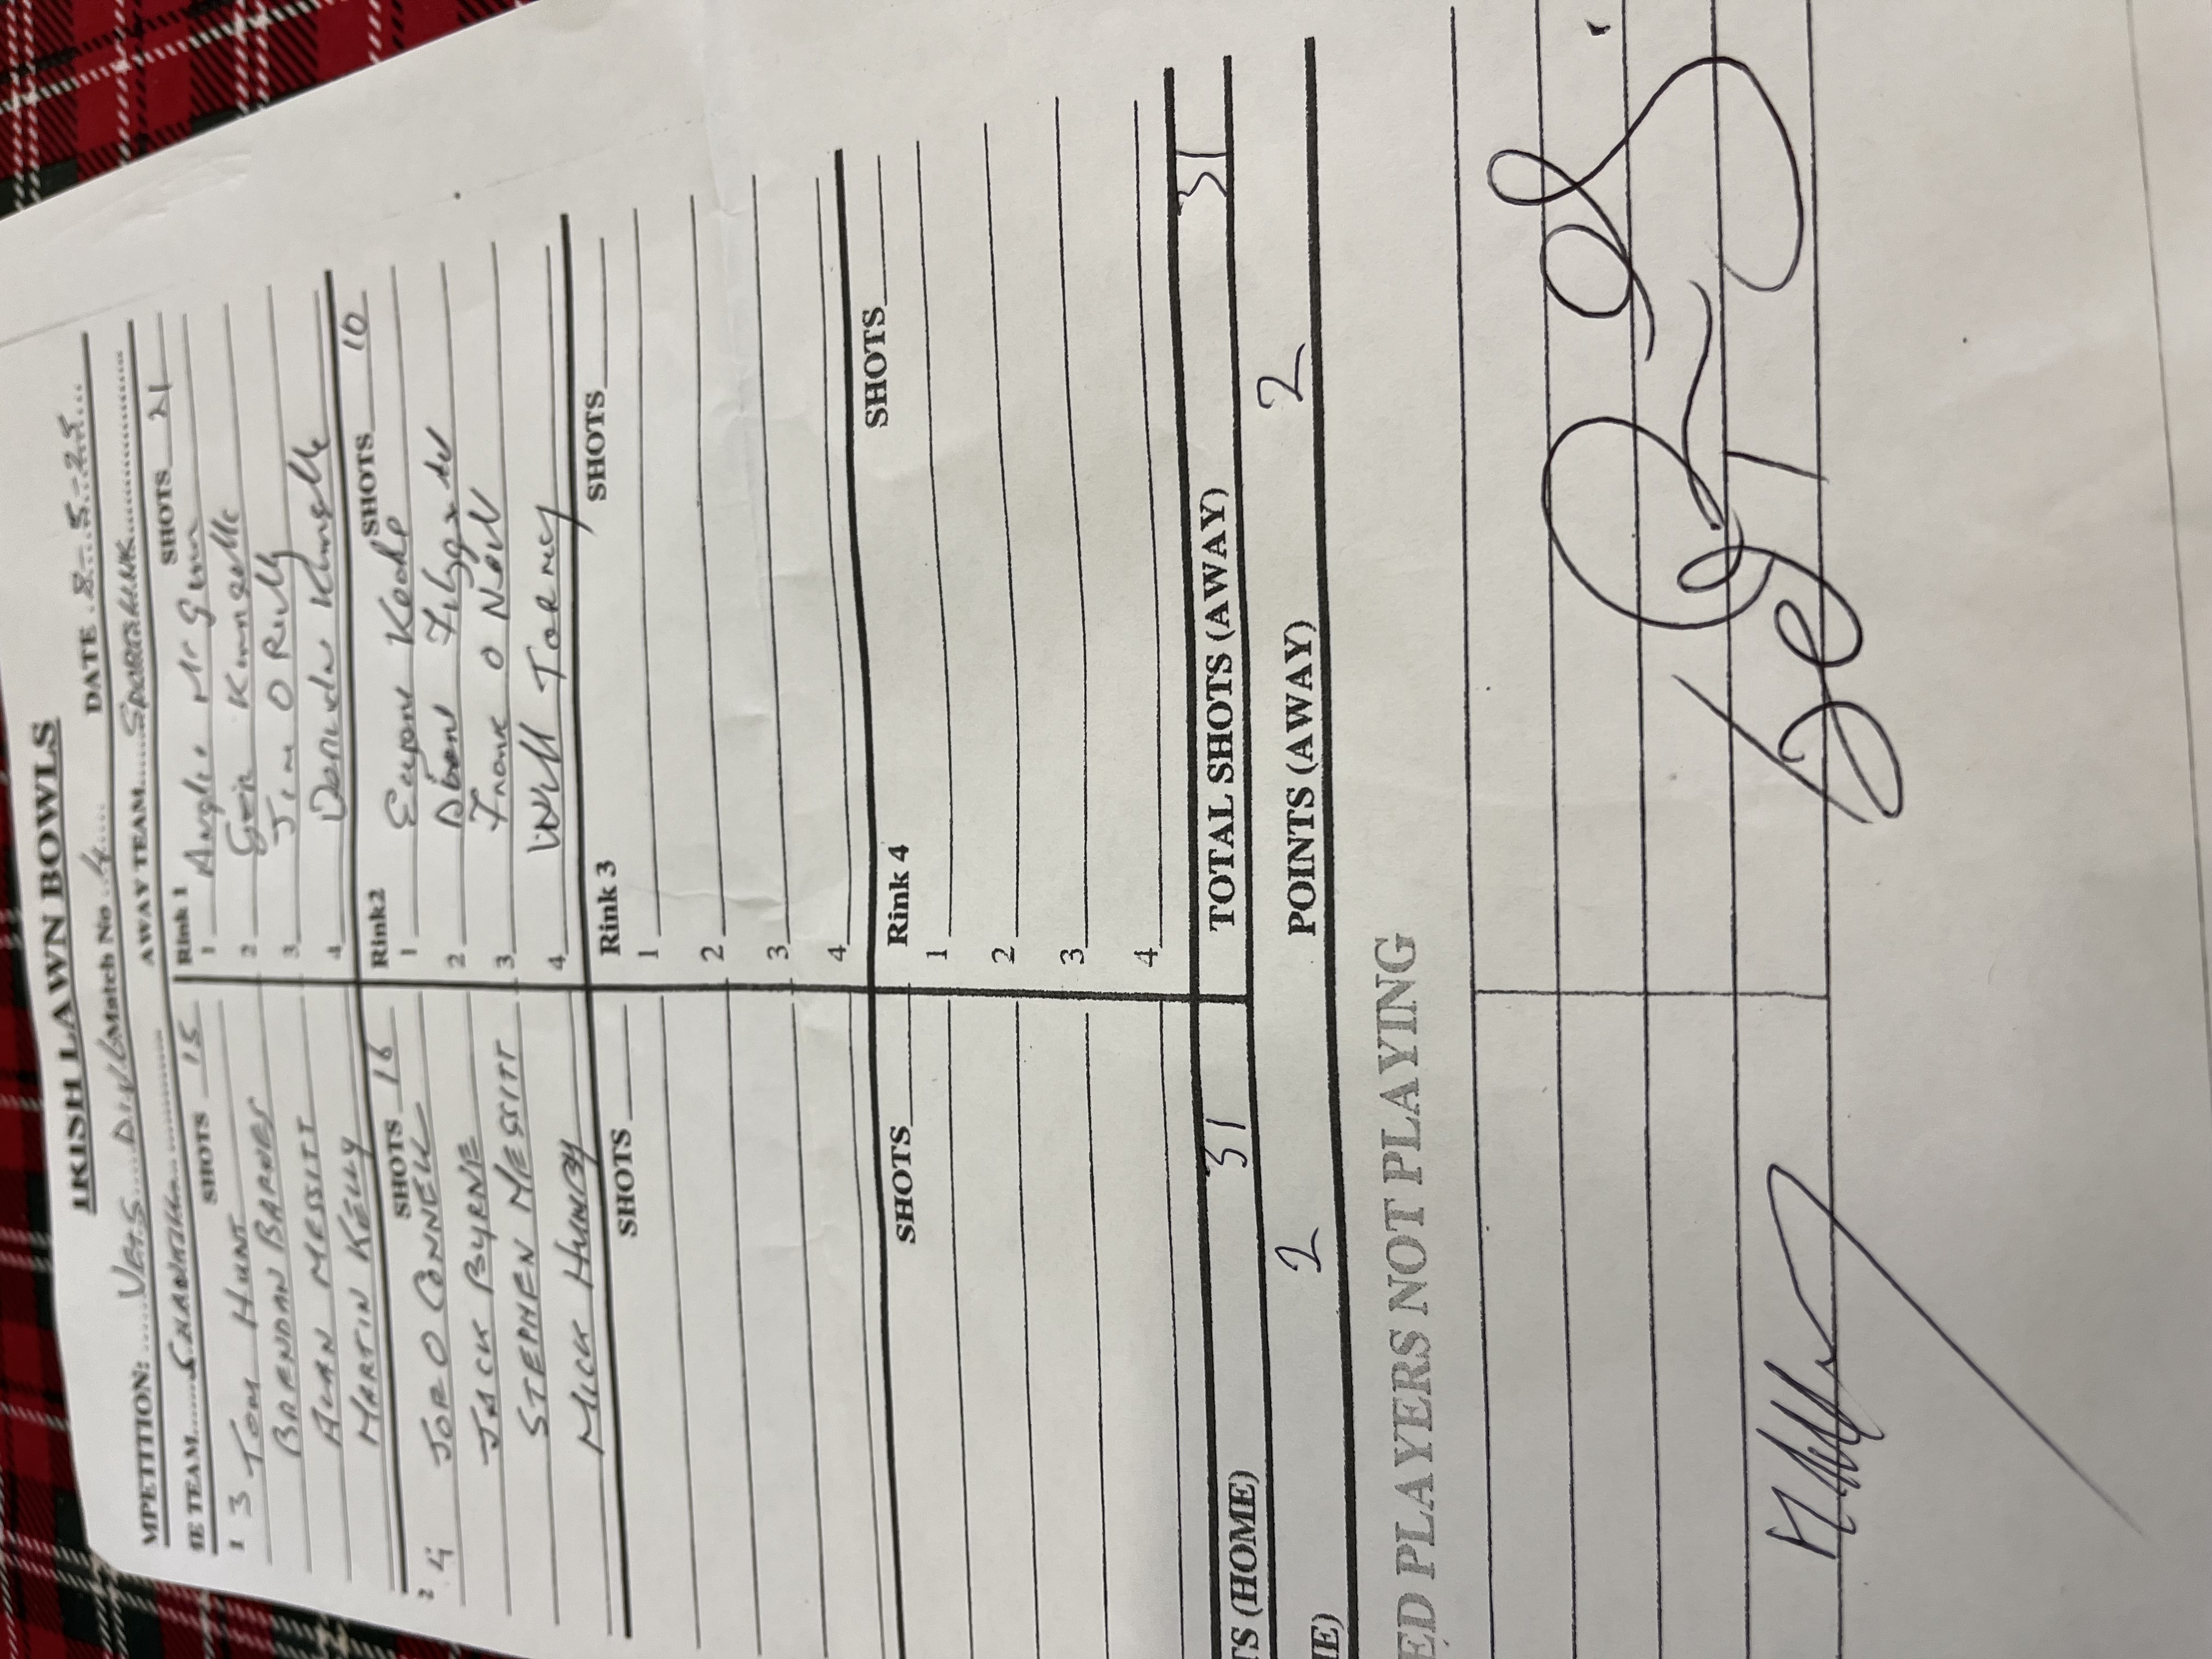 IRISH LAWN BOWLS
MPETITION: VETS DIV 6 Match No 4 DATE 8-5-25
IE TEAM SHANKILL AWAY TEAM SPORTSLINK
SHOTS 15 Rink 1 SHOTS 21
1 3 TOM HUNT 1
BRENDAN BARNES 2 Kinsella
ALAN MESSITT 3 Jim O Reilly
MARTIN KELLY 4 Kinsella
SHOTS 16 Rink2 SHOTS 10
2 4 JOE O CONNELL 1 Keogh
JACK BYRNE 2
STEPHEN MESSITT 3 Frank O Neill
MICK HUMBY 4 Will Tormey
SHOTS Rink 3 SHOTS
1
2
3
4
SHOTS Rink 4 SHOTS
1
2
3
4
TS (HOME) 31 TOTAL SHOTS (AWAY) 31
IE) 2 POINTS (AWAY) 2
ED PLAYERS NOT PLAYING